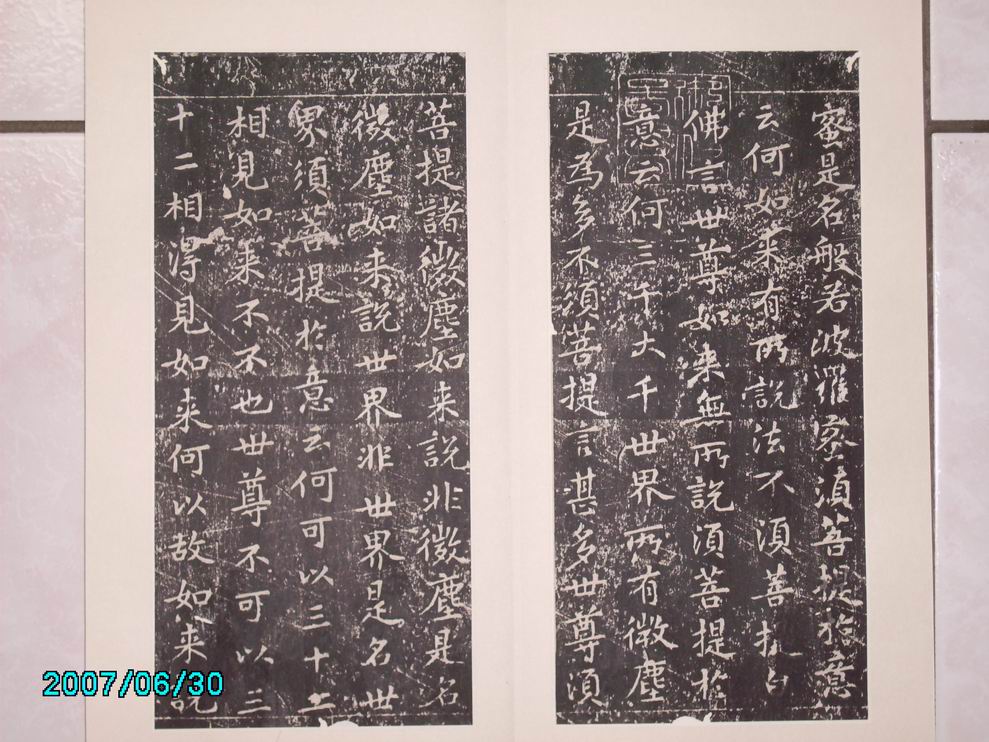 蜜是名般若波羅蜜須菩提於意
云何如来有所說法不須菩提白
佛言世尊如来無所說須菩提於
意云何三千大千世界所有微塵
是為多不須菩提言甚多世尊須
菩提諸微塵如来說非微塵是名
微塵如来說世界非世界是名世
界須菩提於意云何可以三十二
相見如来不不也世尊不可以三
十二相得見如来何以故如来說
2007/06/30